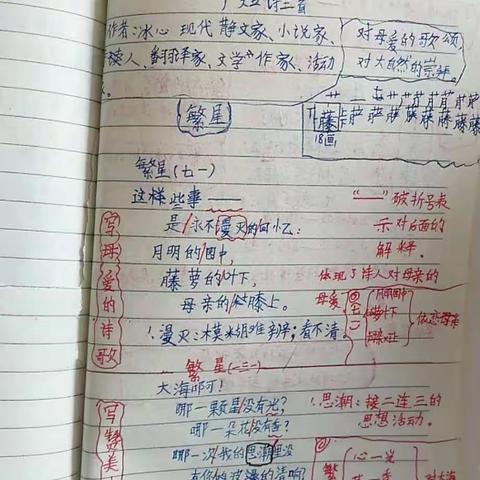 短诗三首
作者:冰心 现代 散文家、小说家、
诗人、翻译家、文学作家、活动
对母爱的歌颂
对大自然的崇拜。
繁星
藤
18画
繁星(七一)
这样些事——
是/永不漫灭的/回忆:
月明的/园中,
藤萝的/叶下,
母亲的/膝上。
1.漫灭:模糊难辨;看不清。
写母爱的诗歌
“——”破折号表
示对后面的
解释。
体现了诗人对母亲的
母爱
七一
月明园中
叶下
膝上
依恋母亲
繁星(一三一)
大海啊!
哪一颗星没有光?
哪一朵花没有香?
哪一次我的思潮里没
有你波涛的清响?
1.思潮:接二连三的
思想活动。
心—光
对大海